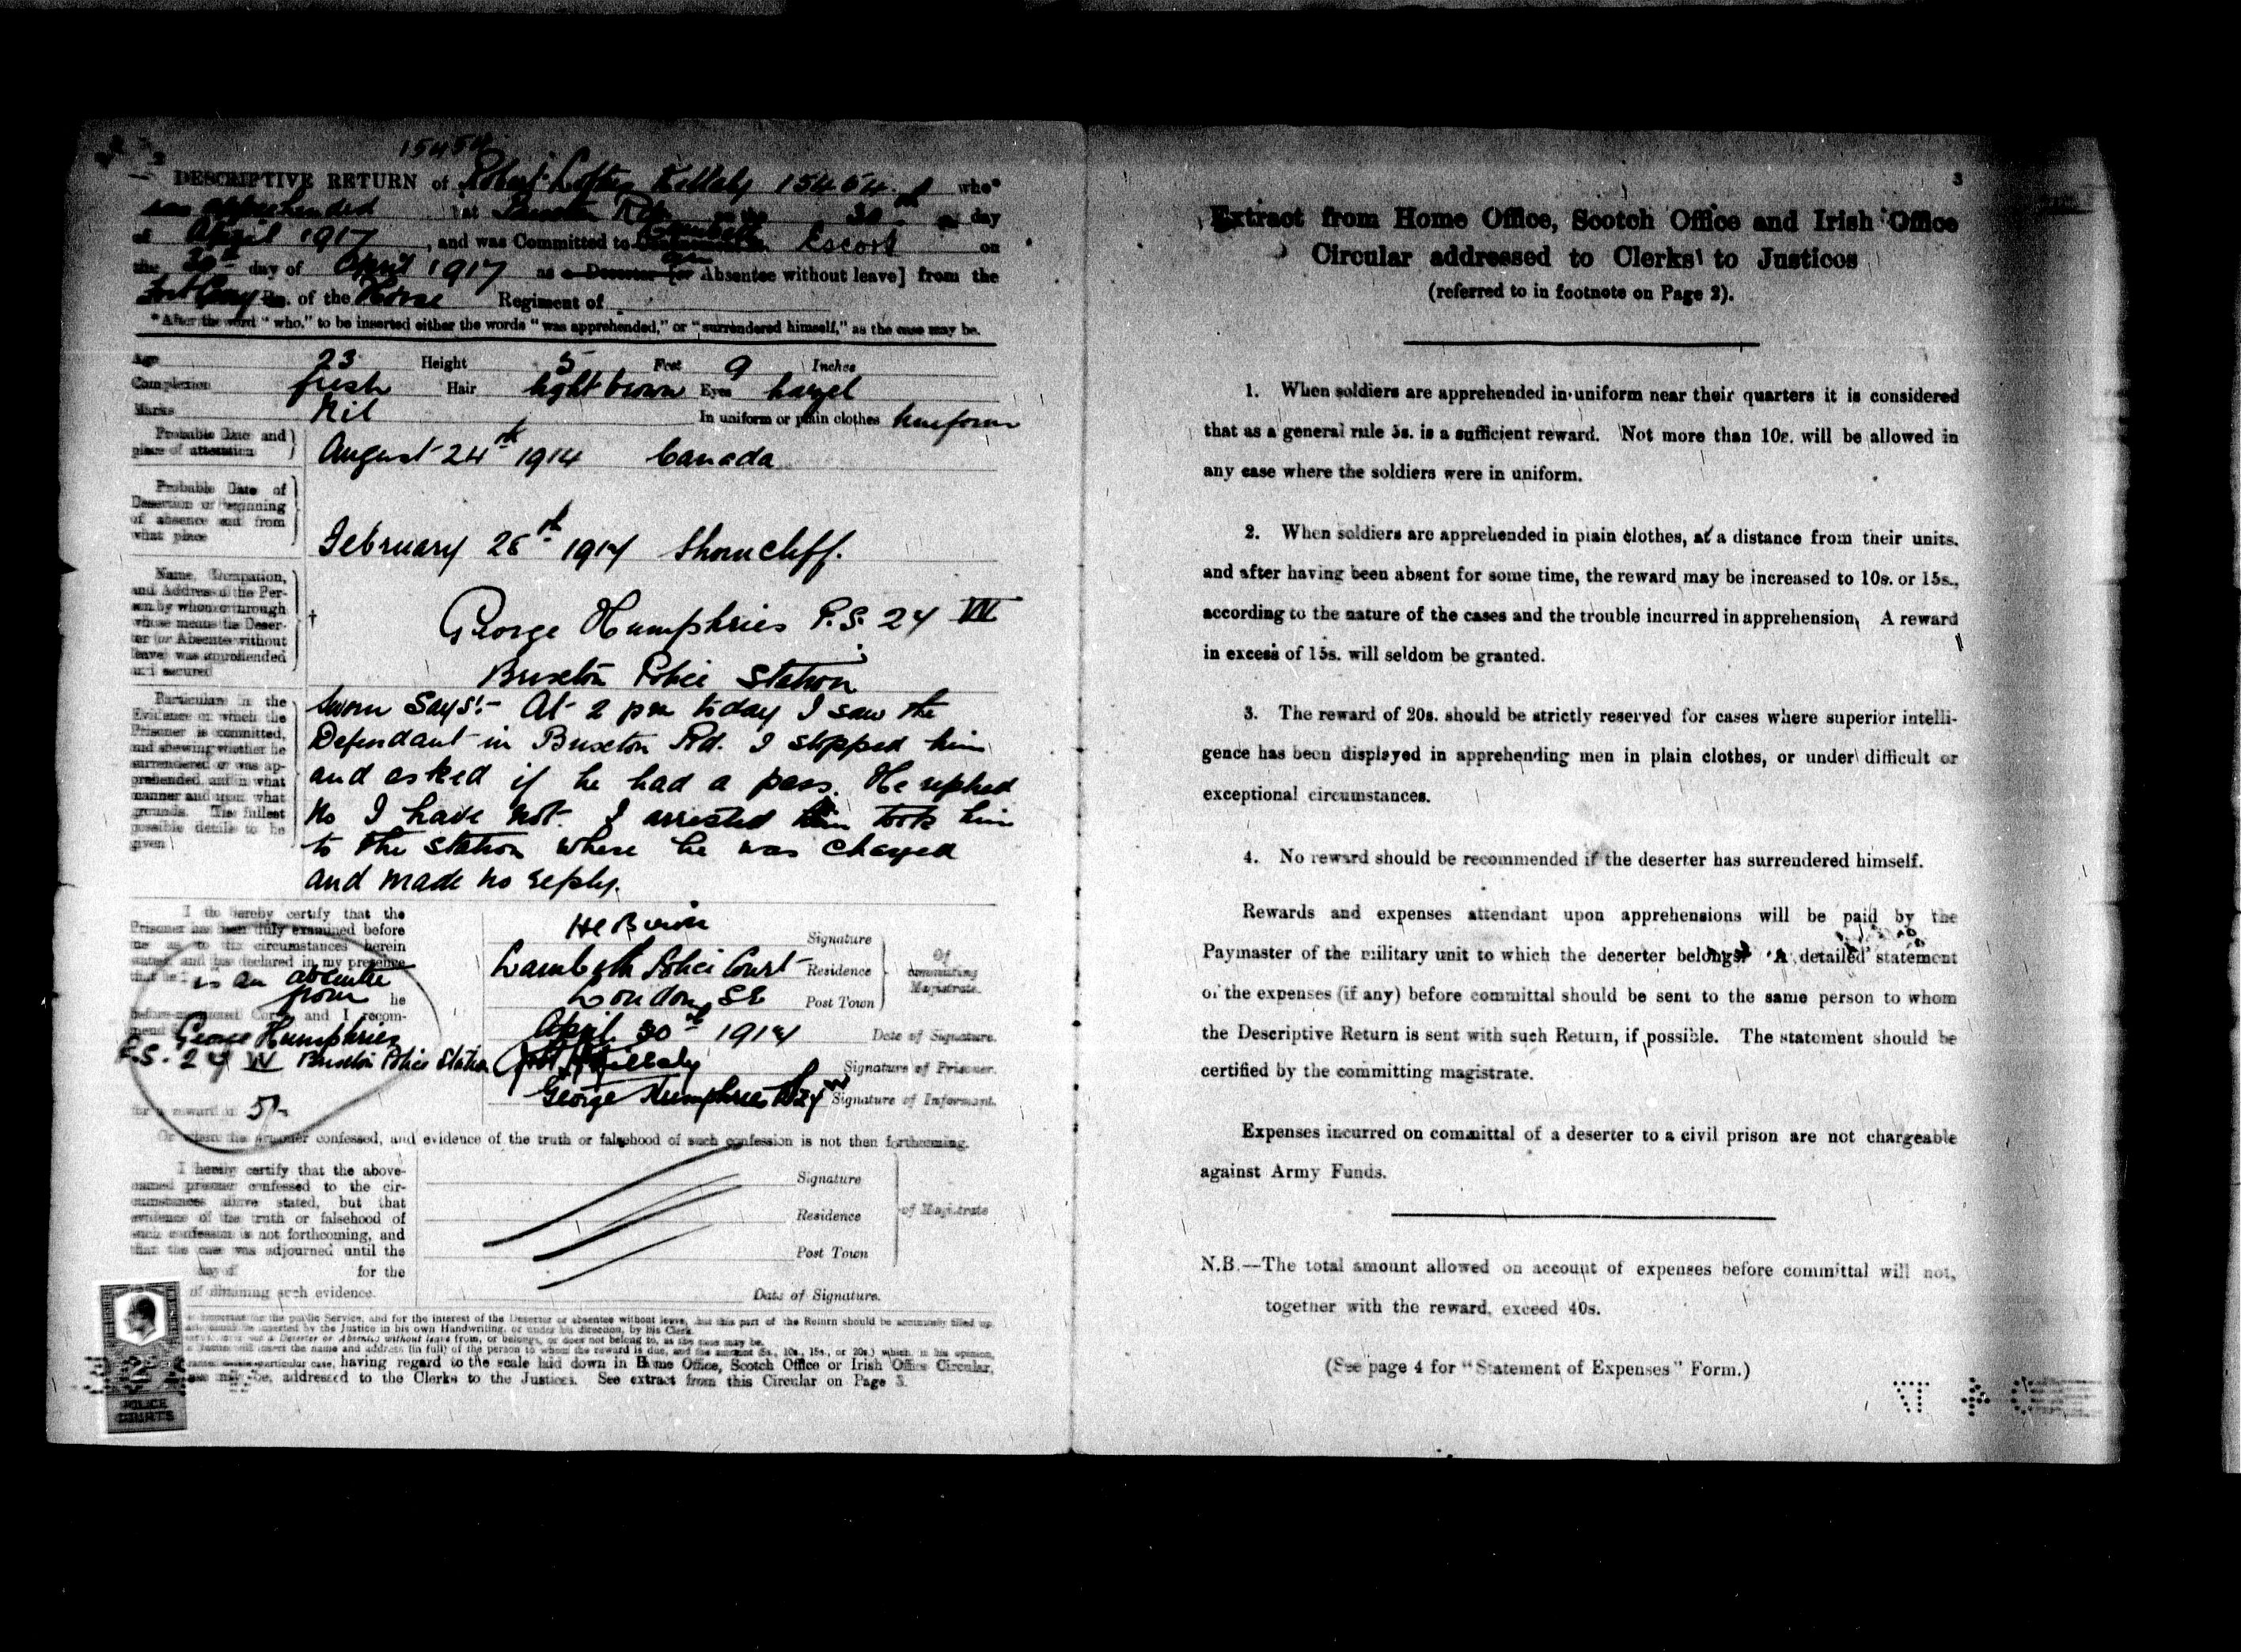 15454
DESCRIPTIVE RETURN of Robert Loftus Killaly 15454 who*
was apprehended at Brixton Rd. on the 30th day
of April 1917, and was Committed to Escort on
the 30th day of April 1917 as a Deserter [or an Absentee without leave] from the
Fort Garry of the Horse Regiment of
*After the word "who," to be inserted either the words "was apprehended," or "surrendered himself," as the case may be.
Age 23 Height 5 Feet 9 Inches
Complexion fresh Hair light brown Eyes hazel
Marks Nil In uniform or plain clothes Uniform
Probable Date and
place of attestation
August 24th 1914 Canada
Probable Date of
Desertion or beginning
of absence and from
what place
February 28th 1917 Shorncliff.
Name, Occupation,
and Address of the Per-
son by whom or through
whose means the Deser-
ter (or Absentee without
leave) was apprehended
and secured
† George Humphries P.S. 24 W
Brixton Police Station
Particulars in the
Evidence on which the
Prisoner is committed,
and shewing whether he
surrendered or was ap-
prehended, and in what
manner and upon what
grounds. The fullest
possible details to be
given
Sworn Says:- At 2 pm today I saw the
Defendant in Brixton Rd. I stopped him
and asked if he had a pass. He replied
No I have not. I arrested him took him
to the station where he was charged
and made no reply.
I do hereby certify that the
Prisoner has been duly examined before
me as to the circumstances herein
stated and has declared in my presence
that he
is an absentee
from he
before-mentioned Corps, and I recom-
mend George Humphries
P.S. 24 W Brixton Police Station
for a reward of 5/-
Signature
Lambeth Police Court Residence
London, SE Post Town
Of
committing
Magistrate.
April 30th 1917 Date of Signature.
Killaly Signature of Prisoner.
George Humphries PS 24 W Signature of Informant.
Or when the prisoner confessed, and evidence of the truth or falsehood of such confession is not then forthcoming.
I hereby certify that the above-
named prisoner confessed to the cir-
cumstances above stated, but that
evidence of the truth or falsehood of
such confession is not forthcoming, and
that the case was adjourned until the
day of for the
of obtaining such evidence.
Signature
Residence
Post Town
of Magistrate
Date of Signature.
for the public Service, and for the interest of the Deserter or absentee without leave, that this part of the Return should be accurately filled up.
inserted by the Justice in his own Handwriting, or under his direction, by his Clerk.
a Deserter or Absentee without leave from, or belongs, or does not belong to, as the case may be.
insert the name and address (in full) of the person to whom the reward is due, and the amount (5s., 10s., 15s., or 20s.) which, in his opinion,
particular case, having regard to the scale laid down in Home Office, Scotch Office or Irish Office Circular,
may be, addressed to the Clerks to the Justices. See extract from this Circular on Page 3.
POLICE
COURTS
3
Extract from Home Office, Scotch Office and Irish Office
Circular addressed to Clerks to Justices
(referred to in footnote on Page 2).
1. When soldiers are apprehended in uniform near their quarters it is considered
that as a general rule 5s. is a sufficient reward. Not more than 10s. will be allowed in
any case where the soldiers were in uniform.
2. When soldiers are apprehended in plain clothes, at a distance from their units,
and after having been absent for some time, the reward may be increased to 10s. or 15s.,
according to the nature of the cases and the trouble incurred in apprehension. A reward
in excess of 15s. will seldom be granted.
3. The reward of 20s. should be strictly reserved for cases where superior intelli-
gence has been displayed in apprehending men in plain clothes, or under difficult or
exceptional circumstances.
4. No reward should be recommended if the deserter has surrendered himself.
Rewards and expenses attendant upon apprehensions will be paid by the
Paymaster of the military unit to which the deserter belongs. A detailed statement
of the expenses (if any) before committal should be sent to the same person to whom
the Descriptive Return is sent with such Return, if possible. The statement should be
certified by the committing magistrate.
Expenses incurred on committal of a deserter to a civil prison are not chargeable
against Army Funds.
N.B.—The total amount allowed on account of expenses before committal will not,
together with the reward, exceed 40s.
(See page 4 for "Statement of Expenses" Form.)